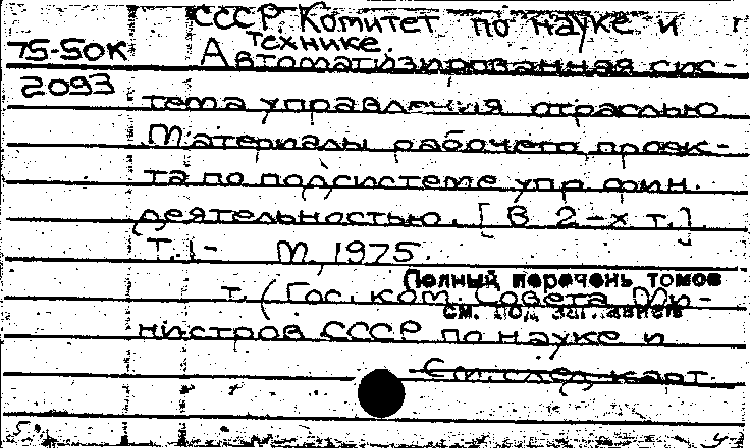 СССР Комитет по науке и
технике.
75-50К Автоматизированная сис-
2093
тема управления отраслью
Материалы рабочего проек-
та по подсистеме упр. фин.
деятельностью. [В 2-х т.]
Т.1- М., 1975.
Полный перечень томов
т. (Гос. ком. Совета Ми-
см. под заг. записи
нистров СССР по науке и
См. след. карт.